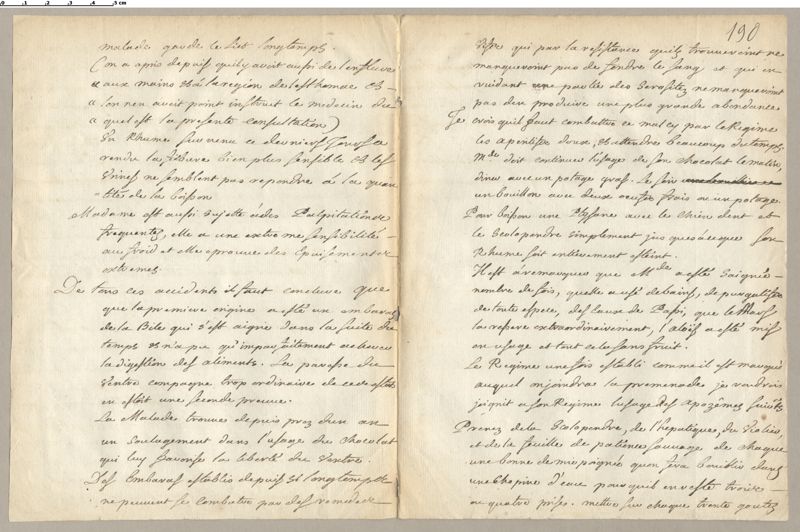 malade garde le Lict longtemps.
(on a apris depuis quil y avoit aussi de l'enflure
« aux mains et a la region de l'esthomac et
« lon nen avoit point instruit le medecin du
« quel est la presente consultation)
Un Rhume survenu ce derniers Jours a
rendu la fièvre bien plus sensible et les
Urines ne semblent pas repondre à la quan
tité de la boisson
Madame est aussi sujette à des Palpitations
frequentes, elle a une extreme sensibilité
au froid et elle eprouve des Epuisements
extremes.
De tous ces accidents il faut conclure que
que la premiere origine a esté un embaras
de la Bile qui s'est aigrie dans la suite du
temps et n'a pu qu'imparfaitement achever
la digestion des aliments. La paresse du
Ventre compagne trop ordinaire de cet estat
en estoit une seconde preuve.
La Malade trouve depuis prez d'un an
un soulagement dans l'usage du chocolat
qui luy favorise la liberté du Ventre.
Des Embaras establis depuis si longtemps
ne peuvent se combattre par des remedes
190
qui par la resistance quils trouveroient ne
manqueroient pas de fondre le sang et qui en
vuidant une partie des serositez ne manqueroient
pas den produire une plus grande abondance
Je crois quil faut combattre ce mal cy par le Regime
les aperitifs doux, et attendre beaucoup du temps.
Mde doit continuer lusage de son chocolat le matin,
diner avec un potage gras. Le soir
un bouillon avec deux oeufs frais ou un potage.
Pour boisson une Ptissane avec le chien dent et
le scolopendre simplement jus ques à ce que son
Rhume soit entierement esteint.
Il est à remarquer que Mde a esté saignée
nombre de fois, quelle a usé de bains, de purgatifs
de toute espece, des eaux de Passi, que le Mars
la resere extraordinairement, l'aloës a esté mis
en usage et tout cela sans fruit.
Le Regime une fois establi comme il est marqué
auquel m joindra la promenade je voudrois
joignit a son Regime lusage des apozêmes suivts
Prenez de la scolopendre, de l'hepatique, du
et de la feuille de patience sauvage de chaque
une bonne demi poignée quon fera bouillir dans
une chopine d'eau pour quil en reste trois
ou quatre prise. mettre sur chaque trente goutes